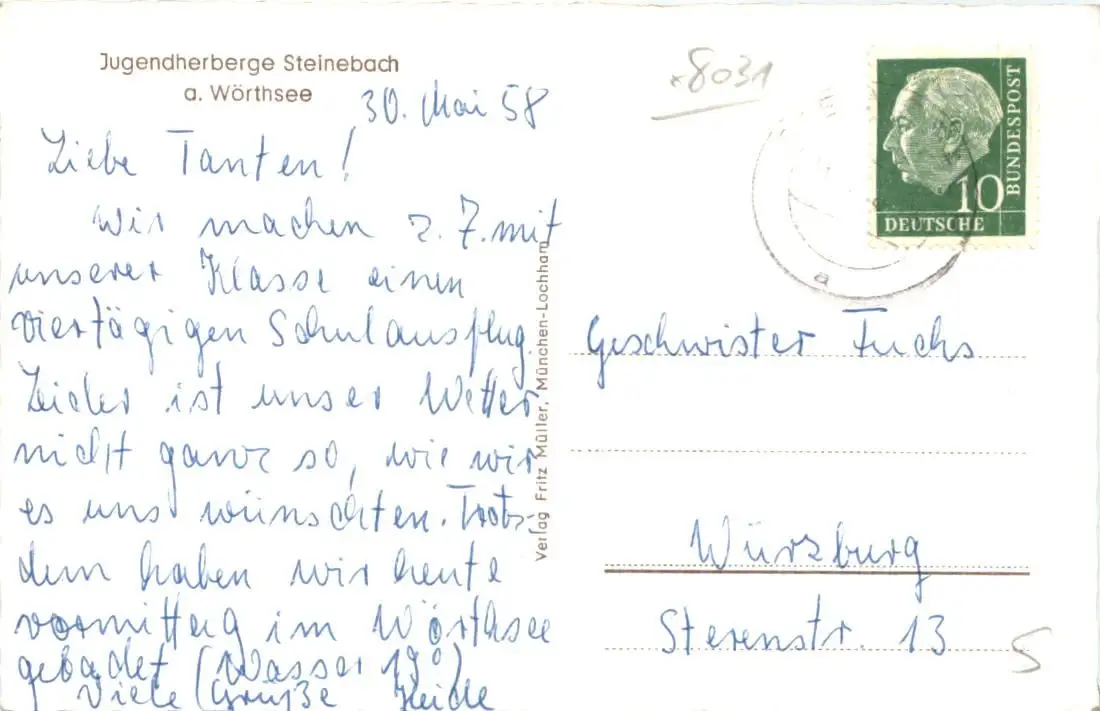 Jugendherberge Steinebach
a. Wörthsee
30. Mai 58
Liebe Tanten!
Wir machen z. Z. mit
unserer Klasse einen
viertägigen Schulausflug.
Leider ist unser Wetter
nicht ganz so, wie wir
es uns wünschten. Trotz-
dem haben wir heute
vormittag im Wörthsee
gebadet (Wasser 19°)
Viele Grüße Heide
Verlag Fritz Müller, München-Lochham
*8031
BUNDESPOST
10
DEUTSCHE
a
Geschwister Fuchs
Würzburg
Sterenstr. 13
S